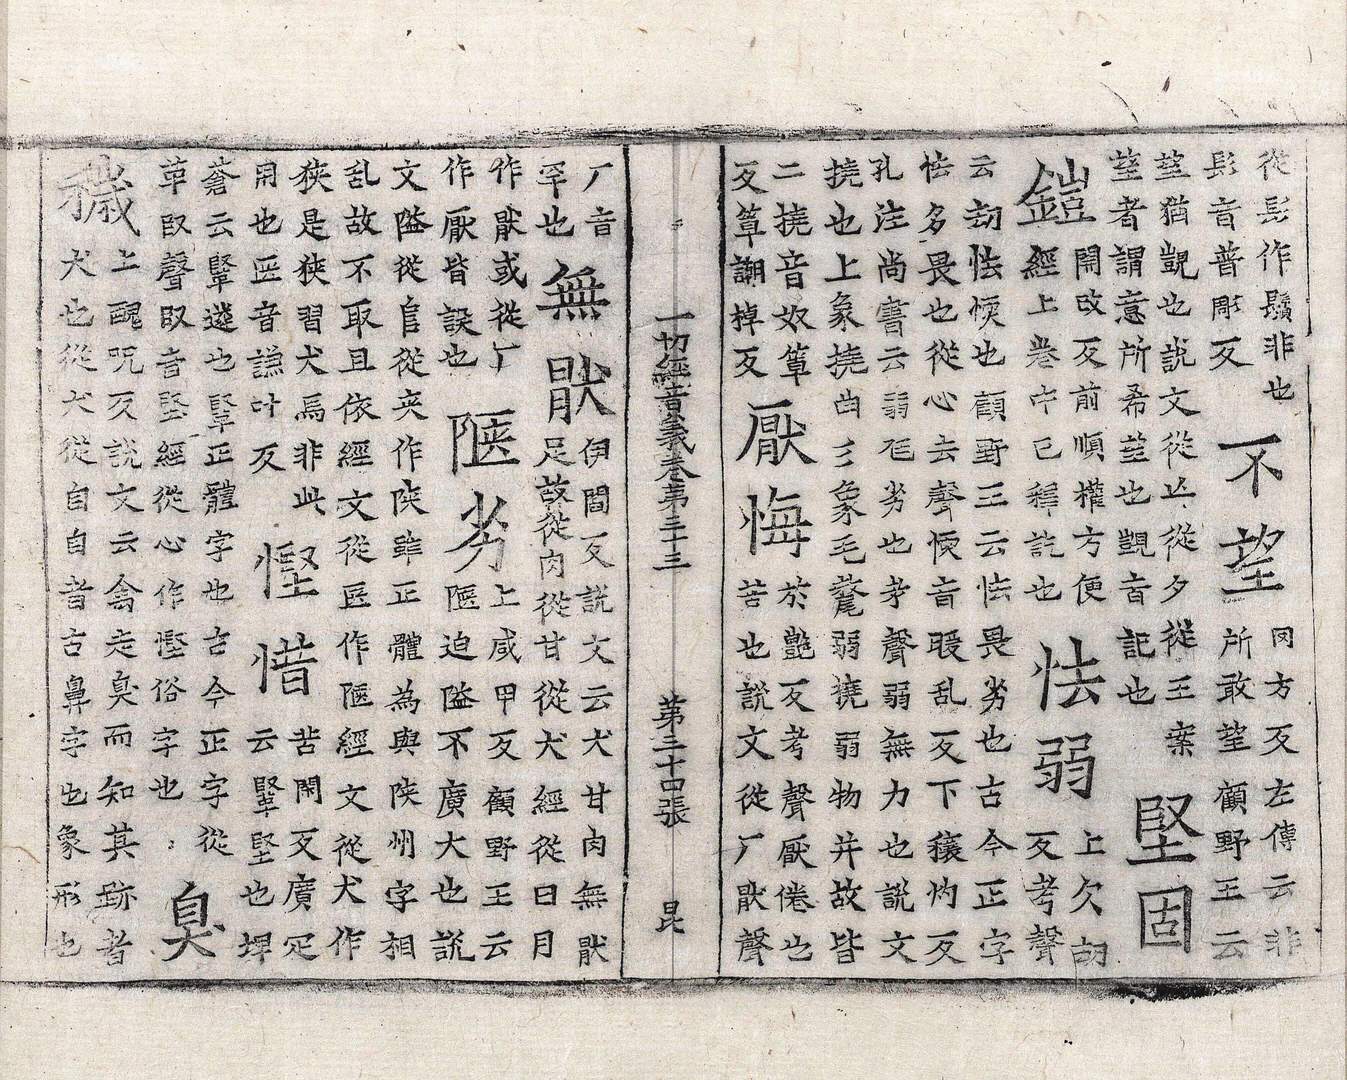 從髟作鬚非也
髟音普彫反
不望
罔方反左傳云非
所敢望顧野王云
望猶覬也說文從亾從夕從王案
望者謂意所希望也覬音記也
堅固
鎧
開改反前順權方便
經上卷中已釋訖也
怯弱
上欠刧
反考聲
云刧怯愞也顧野王云怯畏劣也古今正字
怯多畏也從心去聲愞音暖乱反下穰灼反
孔注尚書云弱尫劣也考聲弱無力也說文
撓也上象撓曲彡象毛氂弱撓弱物并故皆
二撓音奴罩
反罩謿掉反
厭悔
於艷反考聲厭倦也
苦也說文從厂猒聲
一切經音義卷第三十三 第三十四張 昆
厂音
罕也
無猒
伊閻反說文云犬甘肉無猒
足故從肉從甘從犬經從日月
作猒或從厂
作厭皆誤也
陿劣
上咸甲反顧野王云
陿迫隘不廣大也說
文隘從𨸏從夾作陜雖正體為與陜州字相
乱故不取且依經文從匧作陿經文從犬作
狹是狹習犬馬非此
用也匧音謙叶反
慳惜
苦閑反廣疋
云堅也埤
蒼云遴也正體字也古今正字從
革臤聲臤音堅經從心作慳俗字也
臭
穢
上醜呪反說文云禽走臭而知其跡者
犬也從犬從自自者古鼻字也象形也